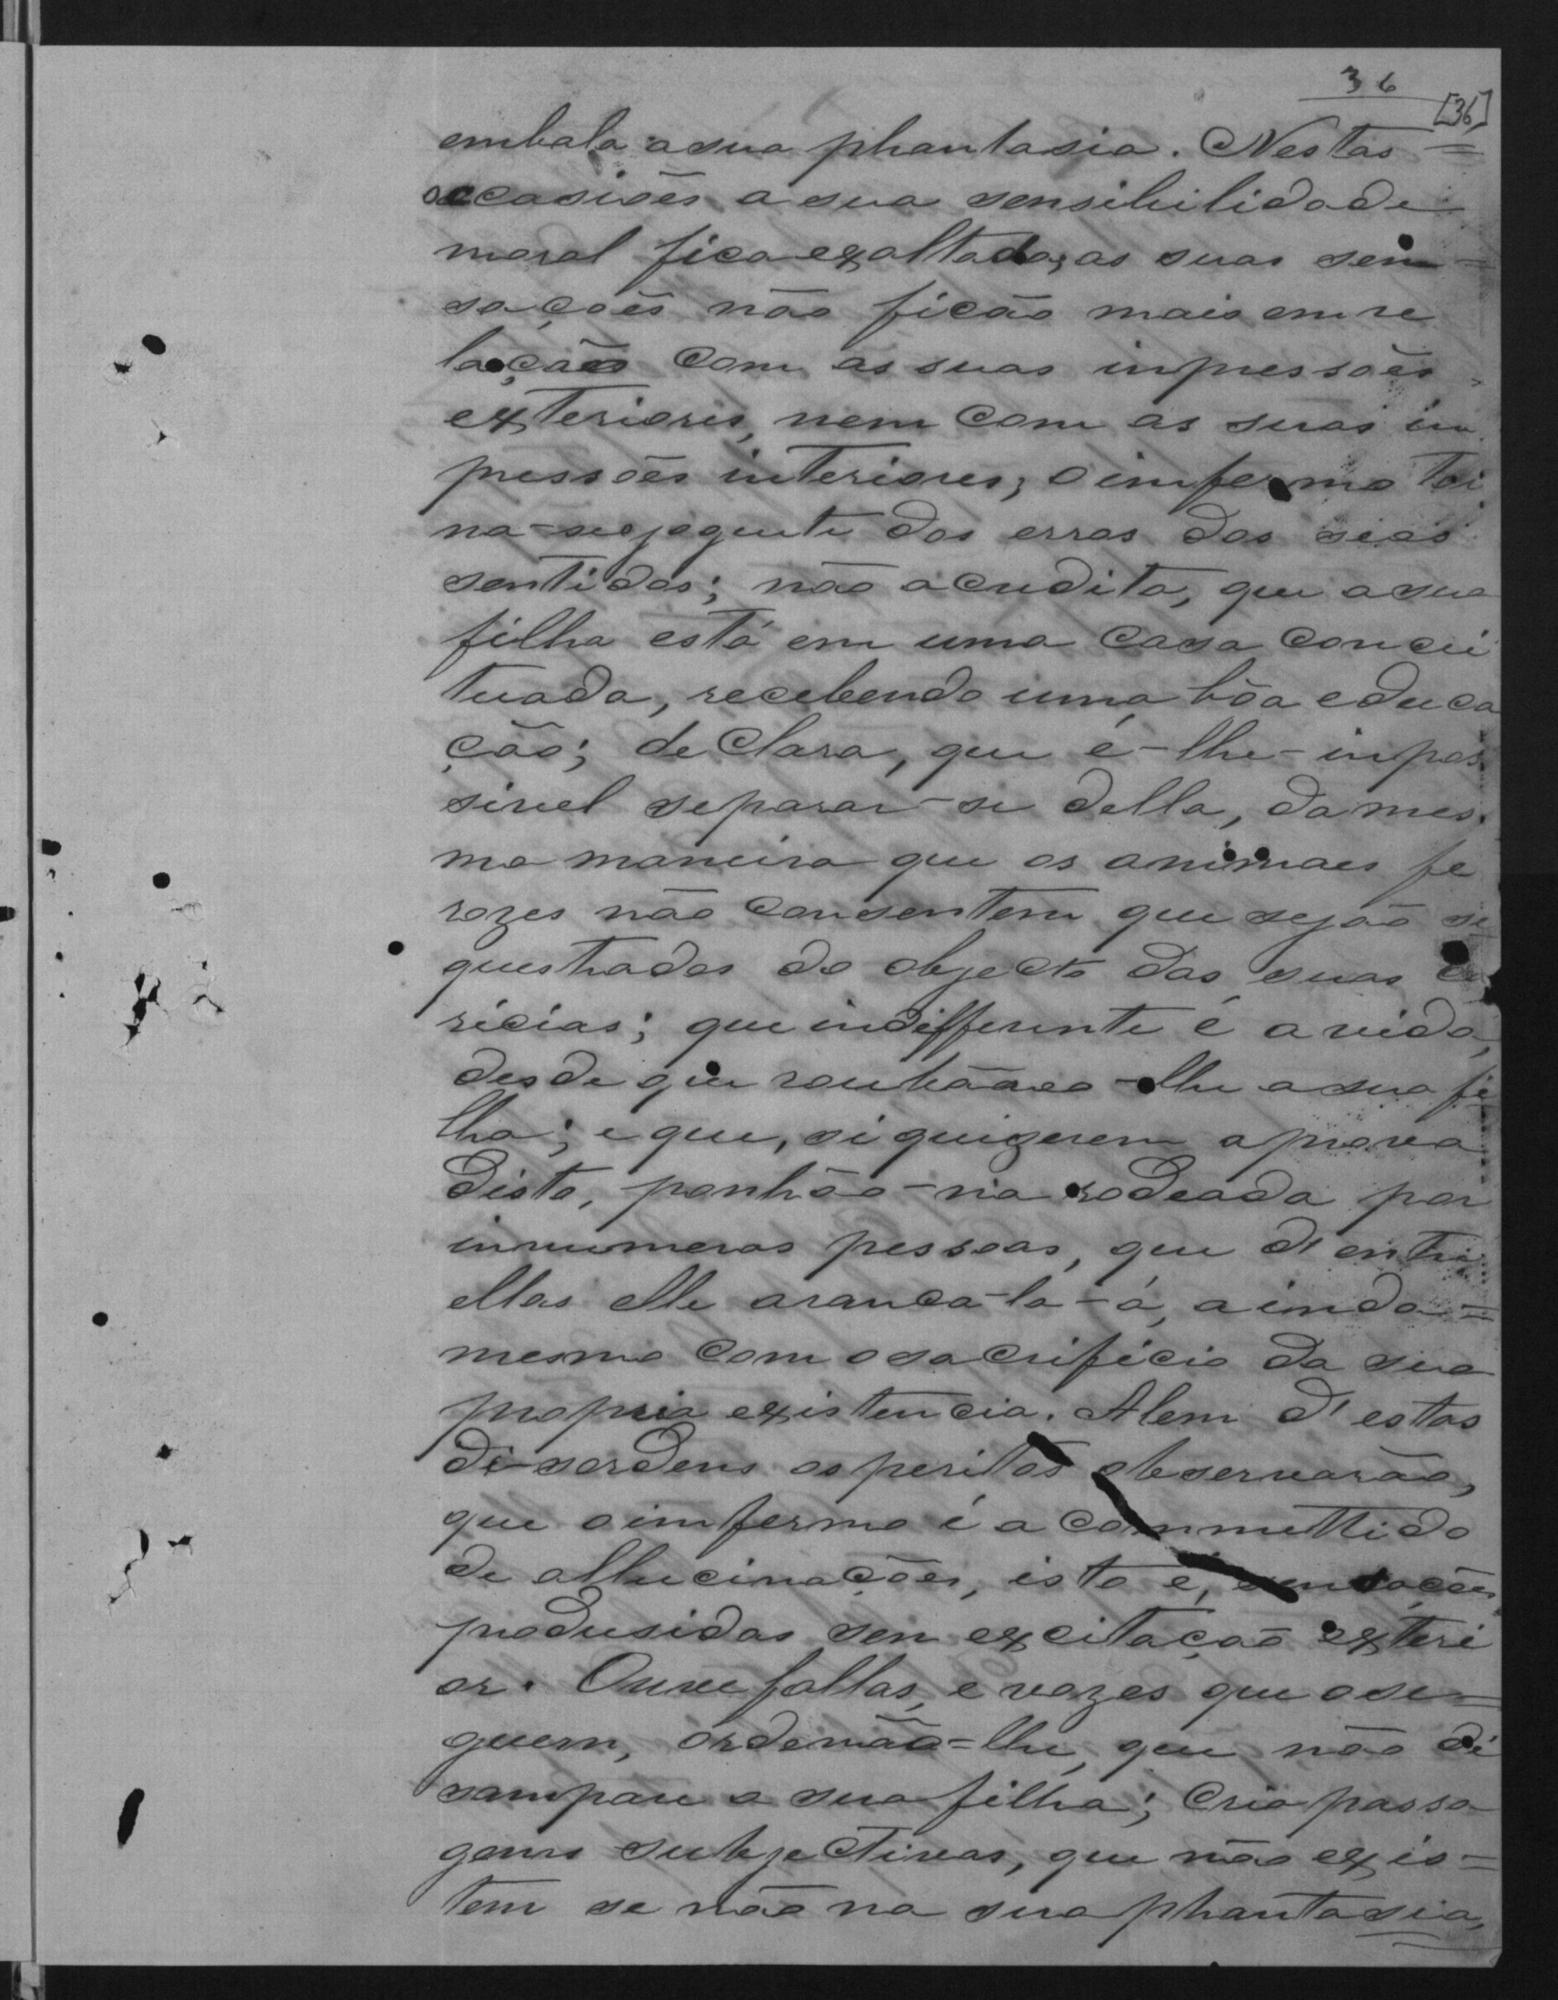 36
[36]
embala a sua phantasia. Nestas =
occasiões a sua sensibilidade
moral fica exaltada, as suas sen=
sações não ficão mais em re
lação com as suas impressões
exteriores, nem com as suas im
pressões interiores; o infermo tor
na-se joguete dos erros dos seos
sentidos; não acredita, que a sua
filha está em uma casa concei
tuada, recebendo uma bôa educa
ção; declara, que é-lhe-impos
sivel separar-se della, da mes
ma maneira que os animaes fe
rozes não consentem que sejão se
questrados do objecto das suas ca
ricias; que indifferente é a vida,
desde que roubão-lhe a sua fi
lha; e que, si quizerem a prova
disto, ponhão-na rodeada por
innumeras pessoas, que d'entre
ellas elle aranca-la-á, ainda=
mesmo com o sacrificio da sua
propria existencia. Alem d'estas
desordens os peritos observarão,
que o infermo é acommettido
de allucinações, isto é, sensações
produsidas sem excitação exteri
or. Ouve fallas, e vozes que o se=
guem, ordenão=lhe, que não de
sampare a sua filha; cria passa
gens subjectivas, que não exis=
tem se não na sua phantasia,